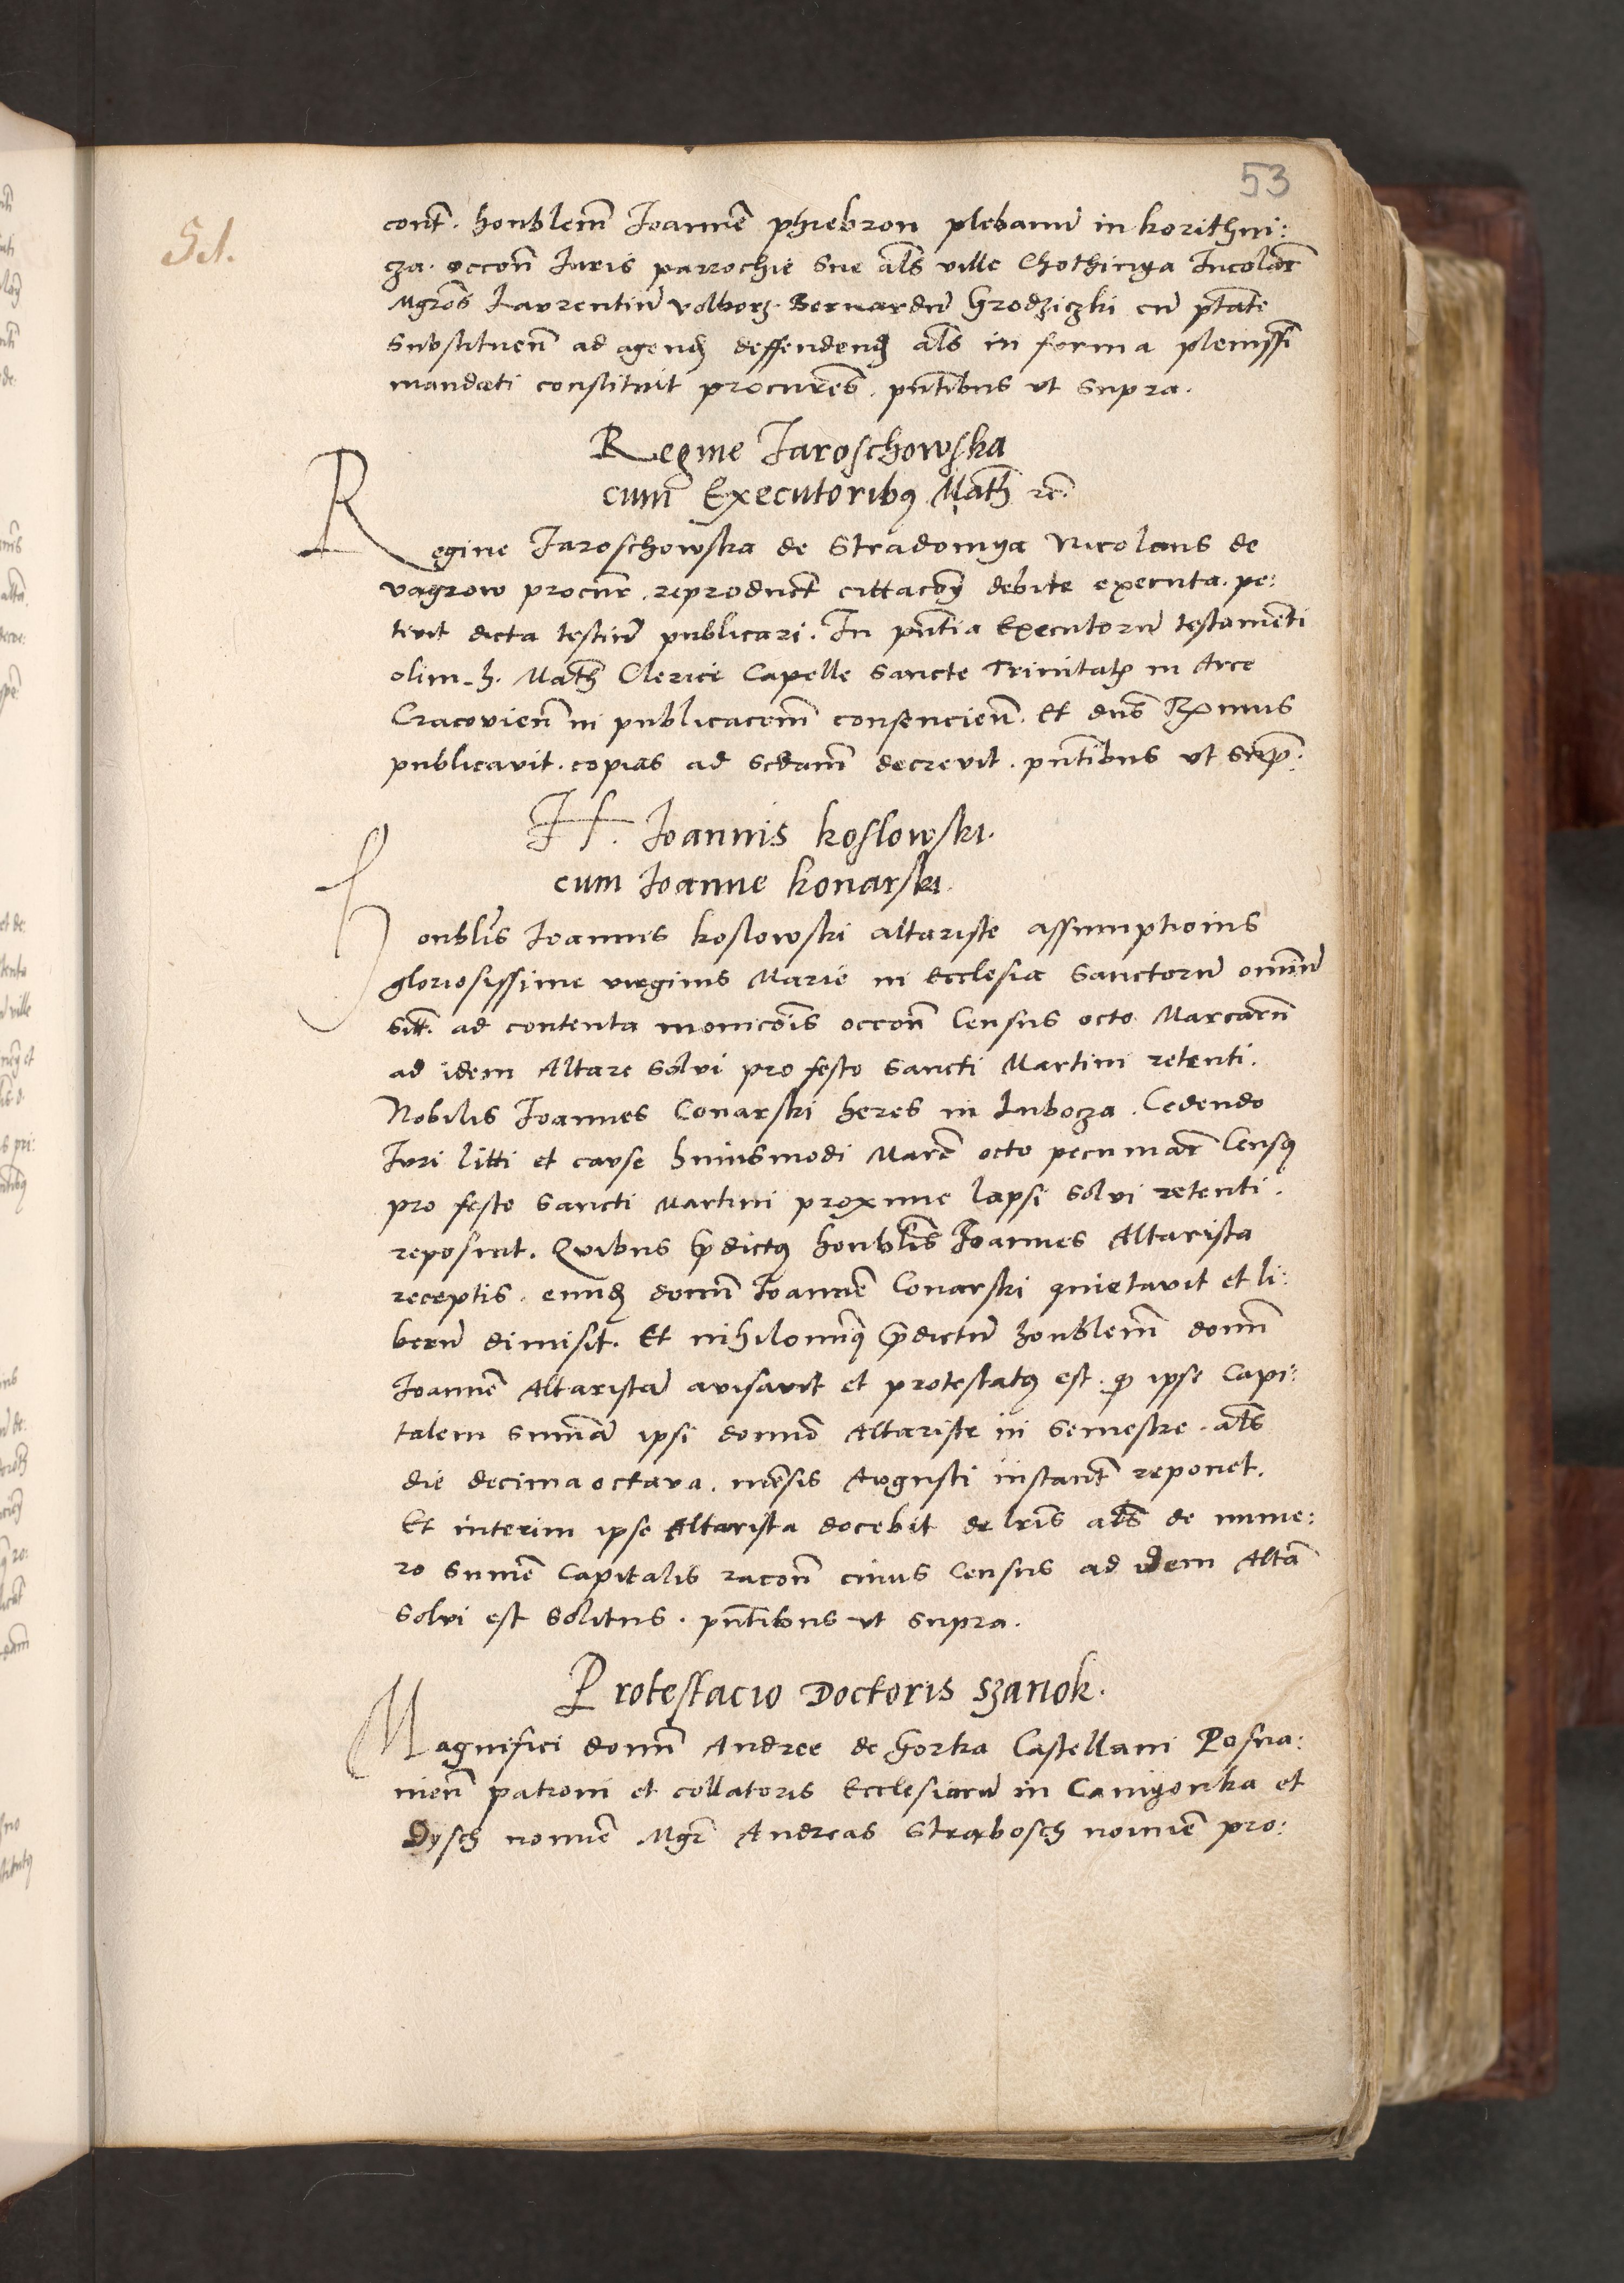 53
51.
cont. honblem̄ Joannē phebron plebanū in korithni:
cza. occon̄ Juris parrochie sue als̄ ville Chothinya Incolar̄
Mgros̄ Laurentiū volborz. Bernardū Grodziczki cū ptāte
substituen̄ ad agend̄ deffendend̄ als̄ in forma pleniss̄i
mandati constituit procures̄. pn̄tibus ut supra.
Regine Jaroschowska
cum̄ Executoribꝯ Math̄ rc̄.
Regine Jaroschowska de Stradomya Nicolaus de
vagrow procur̄ reproduct̄ cittacōꝫ debite executa. pe:
tivit dicta testiū publicari. In pn̄tia Executorū testamēti
olim h. Math̄ Clerici Capelle Sancte Trinitatꝭ in Arce
Cracovien̄ in publicacem̄ consencien̄. Et dns̄ R̄ximus
publicavit. copias ad scdam̄ decrevit. pn̄tibus ut sup̄.
H. Joannis koslowski.
cum Joanne konarski.
Honblis̄ Joannis koslowski altariste assumptionis
gloriosissime virginis Marie in Ecclesia Sanctorū om̄iū
sitt̄. ad contenta monicōis occon̄ Census octo Marcarū
ad idem Altare solvi pro festo Sancti Martini retenti.
Nobilis Joannes Conarski heres in Lubocza. Cedendo
Juri litti et cause huiusmodi Marc̄ octo pecuniar̄ Censꝯ
pro festo Sancti Martini proxime lapsi solvi retenti.
reposuit. Quibus p̄dictꝯ honblis̄ Joannes Altarista
receptis. eund̄ dom̄ Joannē Conarski quietavit et li:
berū dimisit. Et nihilominꝯ p̄dictū honblem̄ dom̄
Joannē Altaristā avisavit et protestatꝯ est. ꝙ ipse Capi:
talem sum̄ā ipsi domno Altariste in semestre. als̄
die decima octava. mēsis Augusti instant̄ reponet.
Et interim ipse Altarista docebit de lris̄ als̄ de nume:
ro sum̄e Capitalis racon̄ cuius Census ad idem Altā
solvi est solitus. pn̄tibus ut supra.
Protestacio Doctoris Szanok.
Magnifici dom̄ Andree de Gorka Castellani Posna:
nien̄ patroni et collatoris Ecclesiarū in Camyonka et
Dysch nomīe Mgr̄ Andreas Strabosch nomīe pro: